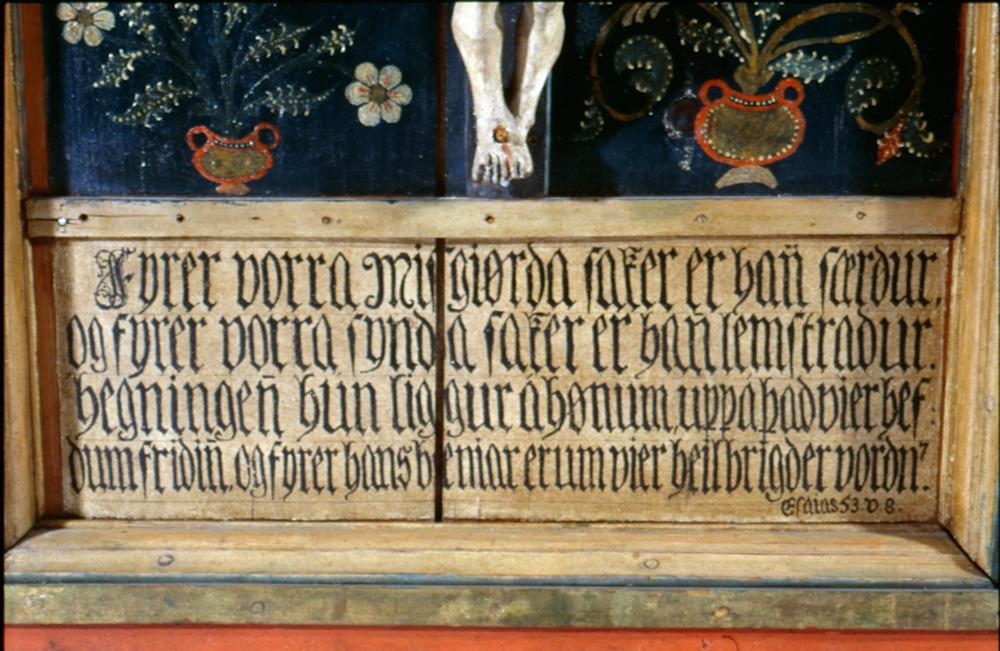 Fyrer vorra Misgiørda saker er han̄ særdur,
og fyrer vorra synda saker er han̄ lemstradur.
hegningen̄ hun liggur a hønum, uppa þad vier hef
dum fridin̄. og fyrer hans beniar erum vier heilbrigder vordn⁷
Esaias 53. v. 8.